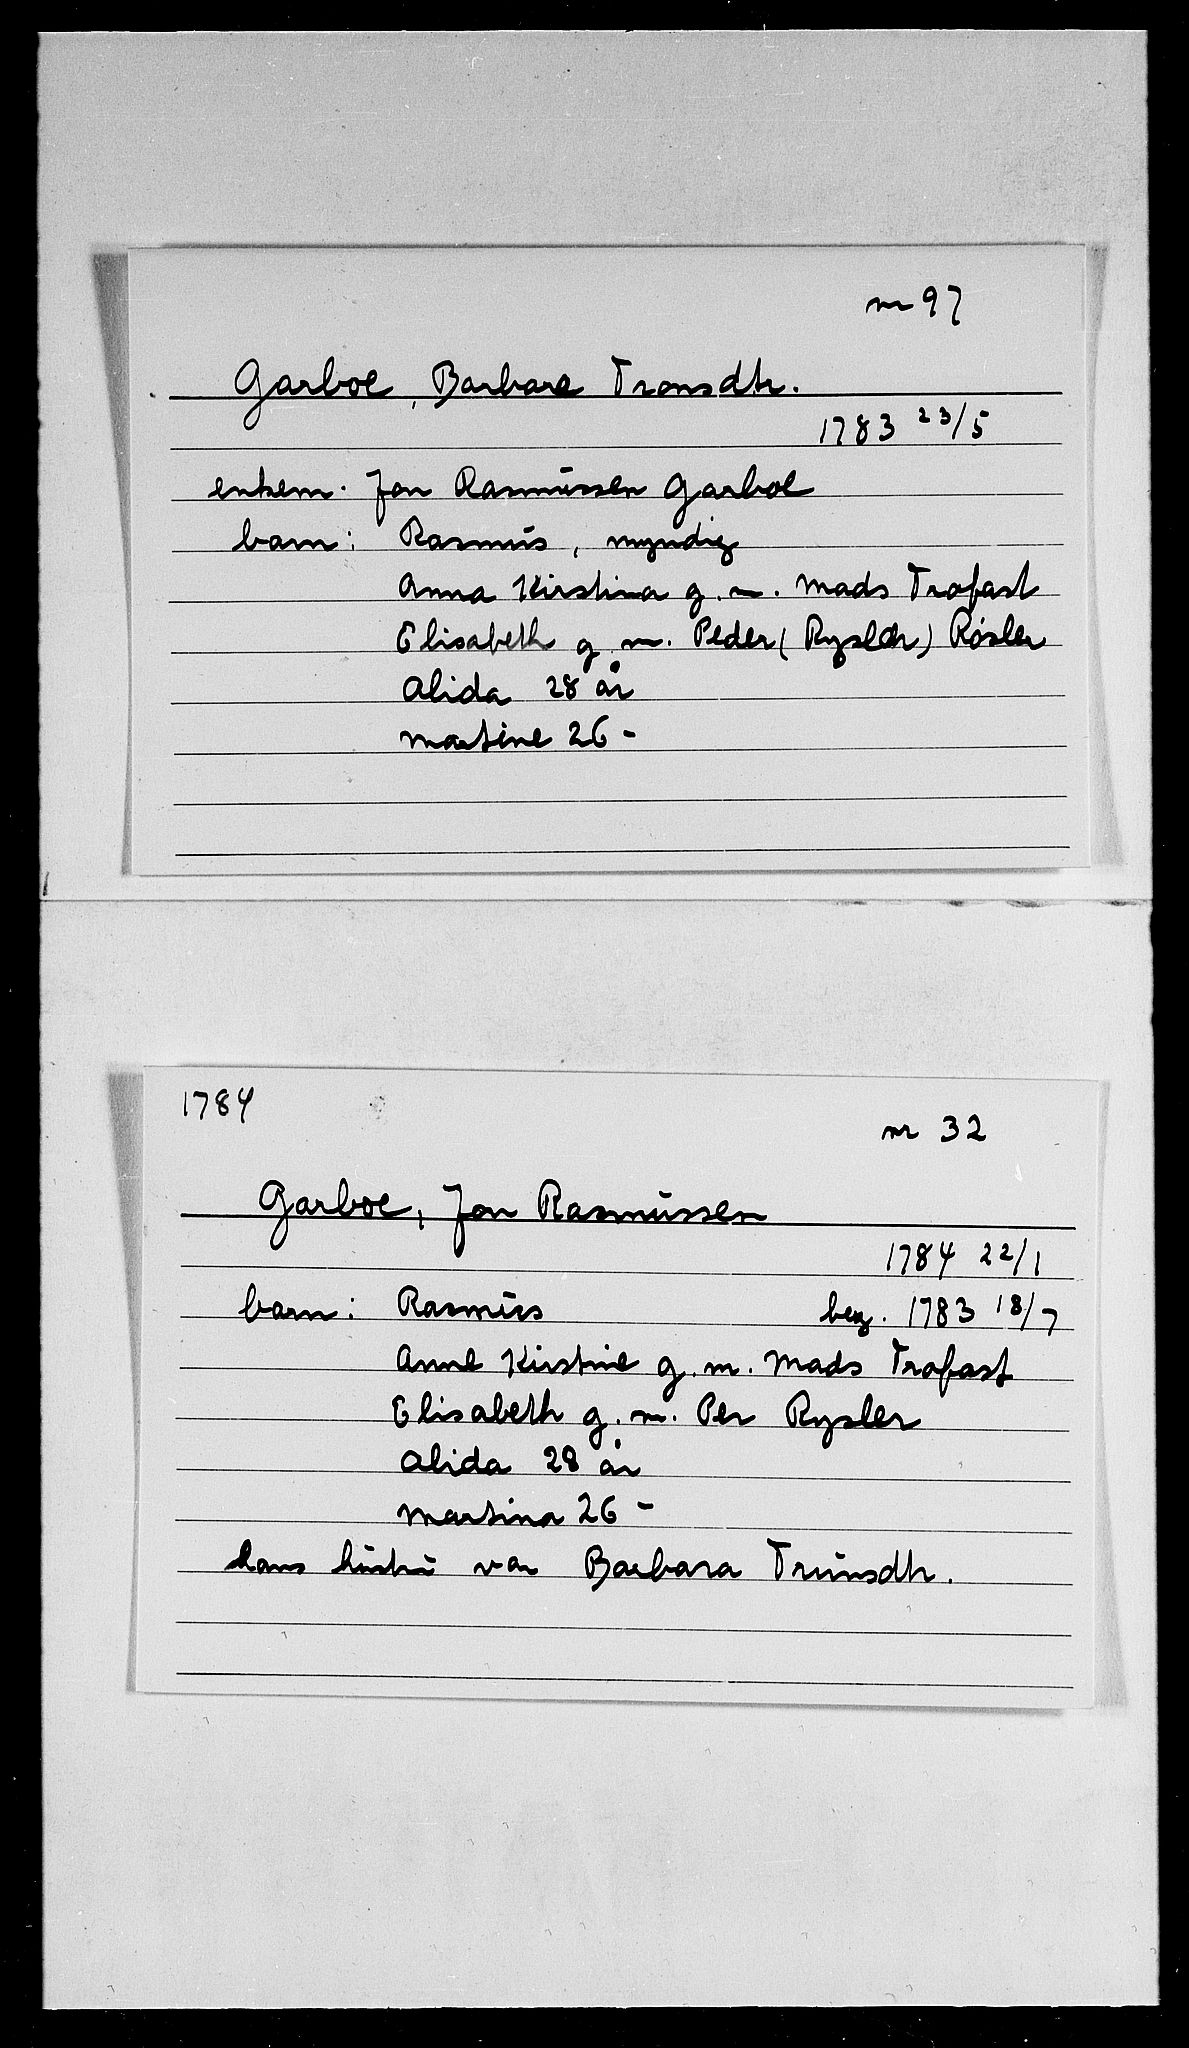 nr 97
Garboe, Barbara Tronsdtr.
1783 23/5
enkem. Jon Rasmussen Garboe
barn: Rasmus, myndig
Anna Kirstina g. m. Mads Trofast
Elisabeth g. m. Peder (Rysler) Røsler
Alida 28 år
Martine 26 -
1784
nr 32
Garboe, Jon Rasmussen
1784 22/1
barn: Rasmus beg. 1783 18/7
Anne Kirstine g. m. Mads Trofast
Elisabeth g. m. Per Rysler
Alida 28 år
Martina 26 -
hans hustru var Barbara Trunsdtr.